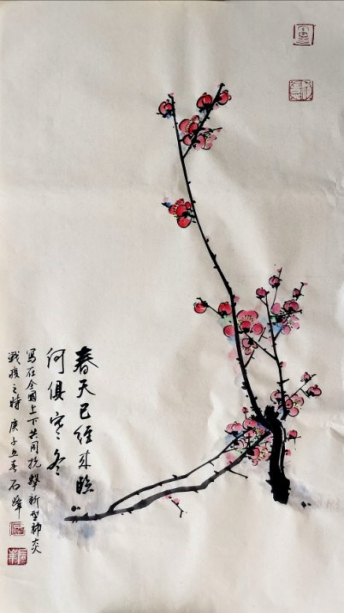 春天已经来临
何俱寒冬
写在全國上下共同抗擊新型肺炎
战役之時 庚子立春 石峰